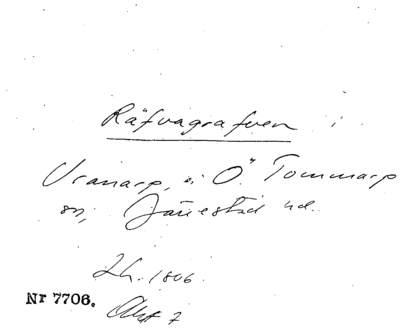 Räfvagrafven i
Vranarp, i Ö. Tommarp
sn, Järrestad hd.
Lh. 1806.
Nr 7706.